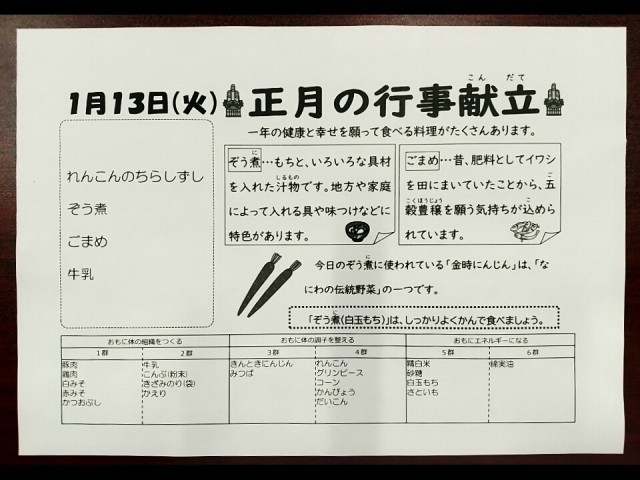 1月13日(火) 正月の行事献立
こん だて
一年の健康と幸せを願って食べる料理がたくさんあります。
れんこんのちらしずし
ぞう煮
ごまめ
牛乳
ぞう煮…もちと、いろいろな具材
に
を入れた汁物です。地方や家庭
しるもの
によって入れる具や味つけなどに
特色があります。
ごまめ…昔、肥料としてイワシ
を田にまいていたことから、五
ご
穀豊穣を願う気持ちが込めら
こくほうじょう
こ
れています。
今日のぞう煮に使われている「金時にんじん」は、「な
に
にわの伝統野菜」の一つです。
「ぞう煮(白玉もち)」は、しっかりよくかんで食べましょう。
に
おもに体の組織をつくる
おもに体の調子を整える
おもにエネルギーになる
1群
2群
3群
4群
5群
6群
豚肉
鶏肉
白みそ
赤みそ
かつおぶし
牛乳
こんぶ(粉末)
きざみのり(袋)
かえり
きんときにんじん
みつば
れんこん
グリンピース
コーン
かんぴょう
だいこん
精白米
砂糖
白玉もち
さといも
綿実油